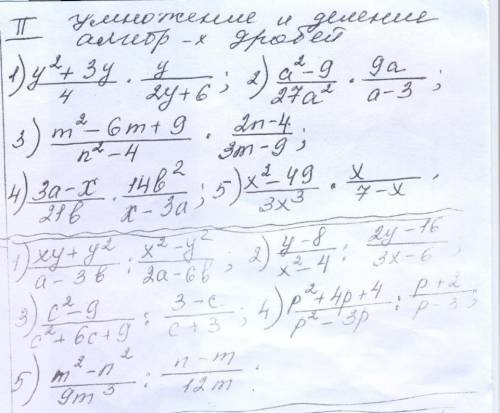 II умножение и деление
алгебр-х дробей
1) (y² + 3y)/4 · y/(2y+6); 2) (a² - 9)/(27a²) · 9a/(a-3);
3) (m² - 6m + 9)/(n² - 4) · (2n-4)/(3m-9);
4) (3a-x)/(21b) · 14b²/(x-3a); 5) (x² - 49)/(3x³) · x/(7-x).
1) (xy + y²)/(a-3b) : (x² - y²)/(2a-6b); 2) (y-8)/(x² - 4) : (2y-16)/(3x-6);
3) (c² - 9)/(c² + 6c + 9) : (3-c)/(c+3); 4) (p² + 4p + 4)/(p² - 3p) : (p+2)/(p-3);
5) (m² - n²)/(9m³) : (n-m)/(12m).